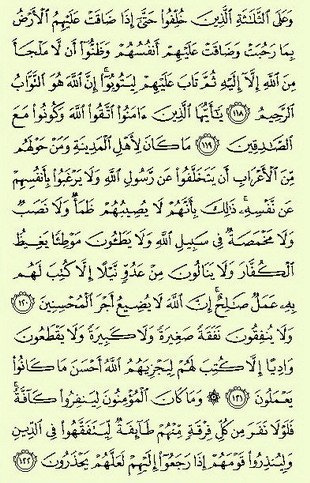 وَعَلَى ٱلثَّلَٰثَةِ ٱلَّذِينَ خُلِّفُوا۟ حَتَّىٰٓ إِذَا ضَاقَتْ عَلَيْهِمُ ٱلْأَرْضُ
بِمَا رَحُبَتْ وَضَاقَتْ عَلَيْهِمْ أَنفُسُهُمْ وَظَنُّوٓا۟ أَن لَّا مَلْجَأَ
مِنَ ٱللَّهِ إِلَّآ إِلَيْهِ ثُمَّ تَابَ عَلَيْهِمْ لِيَتُوبُوٓا۟ إِنَّ ٱللَّهَ هُوَ ٱلتَّوَّابُ
ٱلرَّحِيمُ ١١٨ يَٰٓأَيُّهَا ٱلَّذِينَ ءَامَنُوا۟ ٱتَّقُوا۟ ٱللَّهَ وَكُونُوا۟ مَعَ
ٱلصَّٰدِقِينَ ١١٩ مَا كَانَ لِأَهْلِ ٱلْمَدِينَةِ وَمَنْ حَوْلَهُم
مِّنَ ٱلْأَعْرَابِ أَن يَتَخَلَّفُوا۟ عَن رَّسُولِ ٱللَّهِ وَلَا يَرْغَبُوا۟ بِأَنفُسِهِمْ
عَن نَّفْسِهِۦ ذَٰلِكَ بِأَنَّهُمْ لَا يُصِيبُهُمْ ظَمَأٌ وَلَا نَصَبٌ
وَلَا مَخْمَصَةٌ فِى سَبِيلِ ٱللَّهِ وَلَا يَطَـُٔونَ مَوْطِئًا يَغِيظُ
ٱلْكُفَّارَ وَلَا يَنَالُونَ مِنْ عَدُوٍّ نَّيْلًا إِلَّا كُتِبَ لَهُم
بِهِۦ عَمَلٌ صَٰلِحٌ إِنَّ ٱللَّهَ لَا يُضِيعُ أَجْرَ ٱلْمُحْسِنِينَ ١٢٠
وَلَا يُنفِقُونَ نَفَقَةً صَغِيرَةً وَلَا كَبِيرَةً وَلَا يَقْطَعُونَ
وَادِيًا إِلَّا كُتِبَ لَهُمْ لِيَجْزِيَهُمُ ٱللَّهُ أَحْسَنَ مَا كَانُوا۟
يَعْمَلُونَ ١٢١ ۞ وَمَا كَانَ ٱلْمُؤْمِنُونَ لِيَنفِرُوا۟ كَآفَّةً
فَلَوْلَا نَفَرَ مِن كُلِّ فِرْقَةٍ مِّنْهُمْ طَآئِفَةٌ لِّيَتَفَقَّهُوا۟ فِى ٱلدِّينِ
وَلِيُنذِرُوا۟ قَوْمَهُمْ إِذَا رَجَعُوٓا۟ إِلَيْهِمْ لَعَلَّهُمْ يَحْذَرُونَ ١٢٢